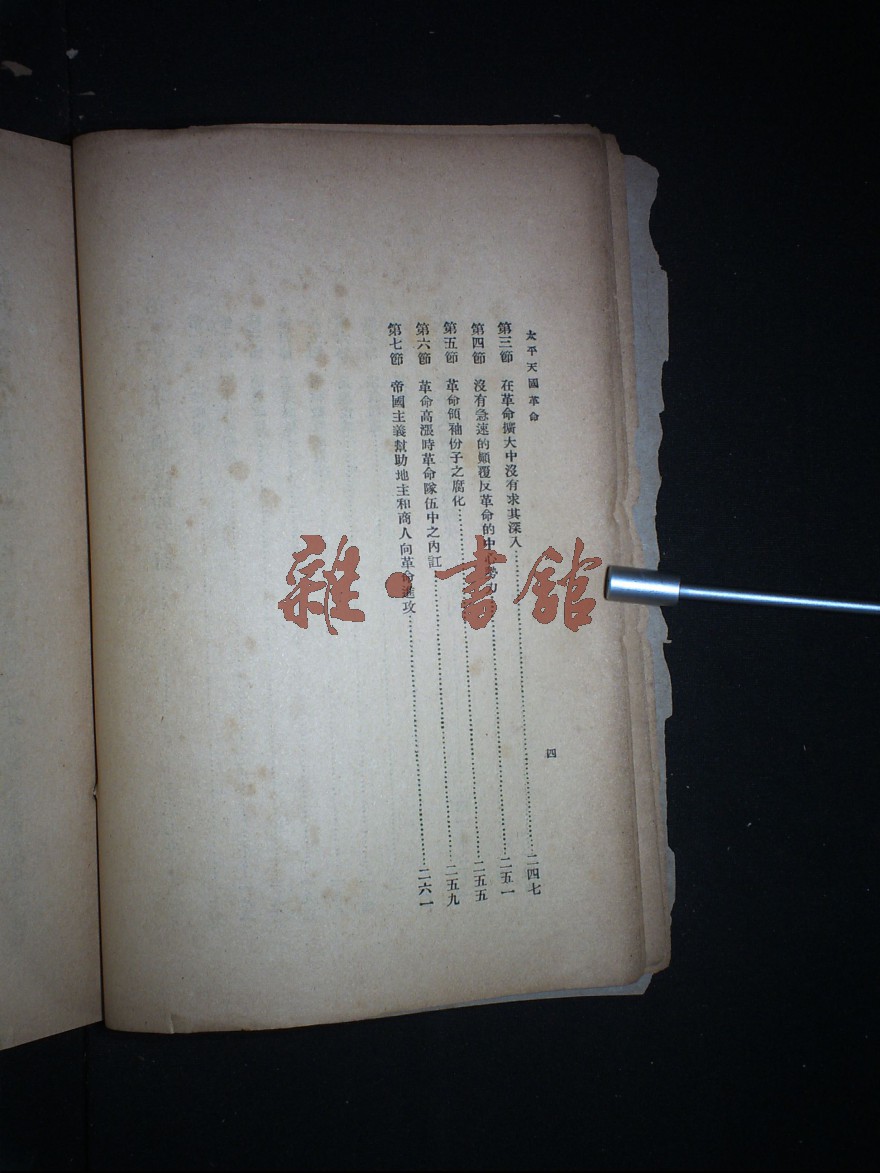 太平天國革命
第三節 在革命擴大中沒有求其深入……二四七
第四節 沒有急速的顛覆反革命的中心勢力……二五一
第五節 革命領袖份子之腐化……二五五
第六節 革命高漲時革命隊伍中之內訌……二五九
第七節 帝國主義幫助地主和商人向革命進攻……二六一
四
雜·書館